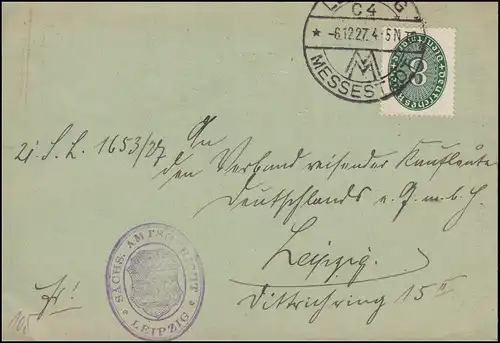 LEIPZIG
C4
* -6.12.27. 4-5 N.
MESSESTADT
Deutsches Reich
8
2i S. L. 1653/27
An
den Verband reisender Kaufleute
Deutschlands e. G. m. b. H.
Leipzig.
Dittrichring 15 II
SÄCHS. AMTSGERICHT
* LEIPZIG *
Fr!
105